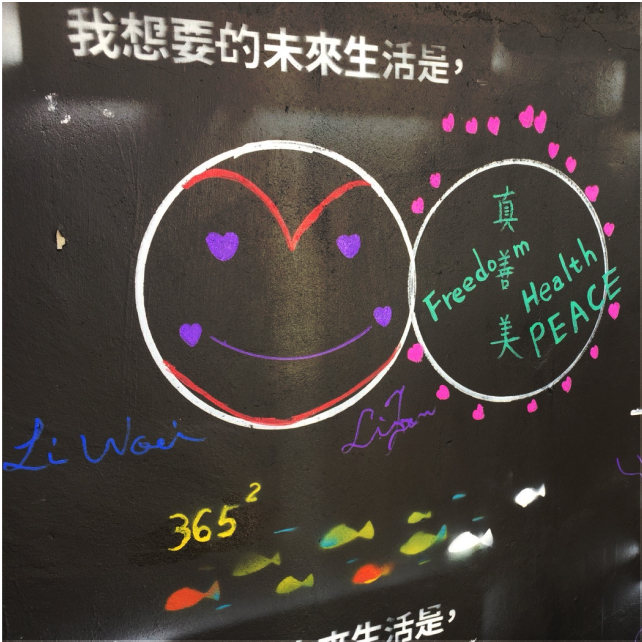 我想要的未來生活是，
真
善
美
Freedom
Health
PEACE
Li Wei
365²
來生活是，